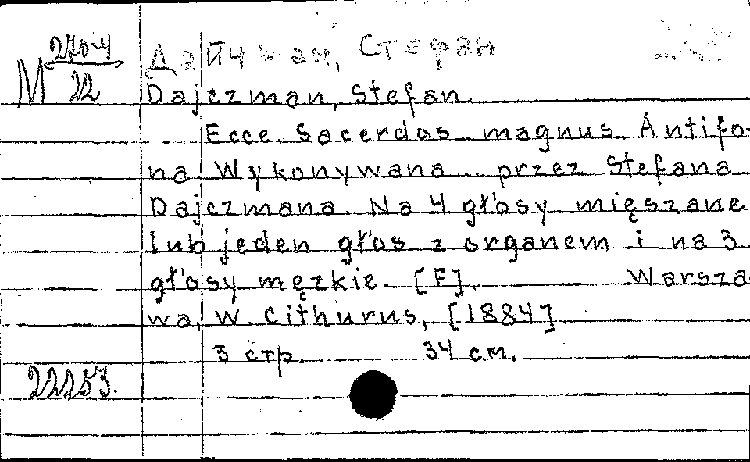 M 270-4/22
Дайчман, Стефан
Dajczman, Stefan.
Ecce Sacerdos magnus. Antifo-
na. Wykonywana przez Stefana
Dajczmana. Na 4 głosy mięszane
lub jeden głos z organem i na 3
głosy męzkie. [F]. Warsza-
wa, W. Cithurus, [1884]
3 стр. 34 см.
22253.